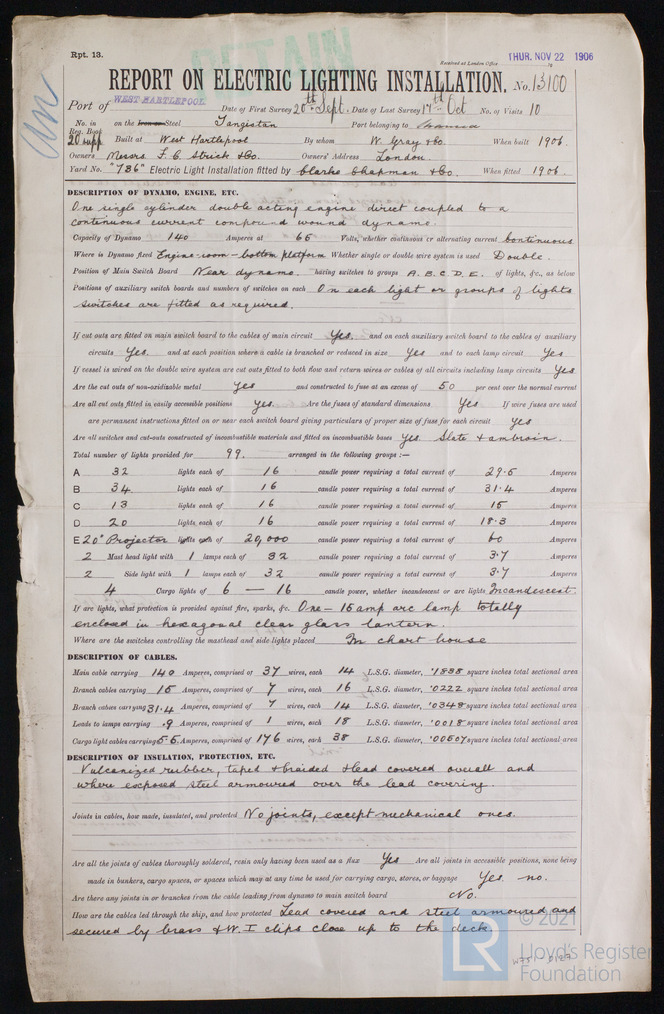 Rpt. 13.
RETAIN
Received at London Office
THUR. NOV 22 1906
19
REPORT ON ELECTRIC LIGHTING INSTALLATION. No. 13100
Port of WEST HARTLEPOOL Date of First Survey 20th Sept. Date of Last Survey 17th Oct No. of Visits 10
No. in Reg. Book 20 supp on the Iron or Steel Tangistan Port belonging to
Built at West Hartlepool By whom W. Gray & Co. When built 1906.
Owners Messrs F. C. Strick & Co. Owners' Address London
Yard No. "736" Electric Light Installation fitted by Clarke Chapman & Co. When fitted 1906.
DESCRIPTION OF DYNAMO, ENGINE, ETC.
One single cylinder double acting engine direct coupled to a
continuous current compound wound dynamo.
Capacity of Dynamo 140 Amperes at 65 Volts, whether continuous or alternating current Continuous
Where is Dynamo fixed Engine-room - bottom platform Whether single or double wire system is used Double.
Position of Main Switch Board Near dynamo. having switches to groups A. B. C. D. E. of lights, &c., as below
Positions of auxiliary switch boards and numbers of switches on each On each light or groups of lights
switches are fitted as required.
If cut outs are fitted on main switch board to the cables of main circuit Yes. and on each auxiliary switch board to the cables of auxiliary
circuits Yes. and at each position where a cable is branched or reduced in size Yes and to each lamp circuit Yes
If vessel is wired on the double wire system are cut outs fitted to both flow and return wires or cables of all circuits including lamp circuits Yes
Are the cut outs of non-oxidizable metal Yes and constructed to fuse at an excess of 50 per cent over the normal current
Are all cut outs fitted in easily accessible positions Yes. Are the fuses of standard dimensions Yes If wire fuses are used
are permanent instructions fitted on or near each switch board giving particulars of proper size of fuse for each circuit Yes
Are all switches and cut-outs constructed of incombustible materials and fitted on incombustible bases Yes. Slate & ambroin.
Total number of lights provided for 99. arranged in the following groups :—
A 32 lights each of 16 candle power requiring a total current of 29.5 Amperes
B 34 lights each of 16 candle power requiring a total current of 31.4 Amperes
C 13 lights each of 16 candle power requiring a total current of 15 Amperes
D 20 lights each of 16 candle power requiring a total current of 18.3 Amperes
E 20" Projector lights each of 20,000 candle power requiring a total current of 60 Amperes
2 Mast head light with 1 lamps each of 32 candle power requiring a total current of 3.7 Amperes
2 Side light with 1 lamps each of 32 candle power requiring a total current of 3.7 Amperes
4 Cargo lights of 6 — 16 candle power, whether incandescent or arc lights Incandescent.
If arc lights, what protection is provided against fire, sparks, &c. One - 15 amp arc lamp totally
enclosed in hexagonal clear glass lantern.
Where are the switches controlling the masthead and side lights placed In chart house
DESCRIPTION OF CABLES.
Main cable carrying 140 Amperes, comprised of 37 wires, each 14 L.S.G. diameter, .1838 square inches total sectional area
Branch cables carrying 15 Amperes, comprised of 7 wires, each 16 L.S.G. diameter, .0222 square inches total sectional area
Branch cables carrying 31.4 Amperes, comprised of 7 wires, each 14 L.S.G. diameter, .0348 square inches total sectional area
Leads to lamps carrying .9 Amperes, comprised of 1 wires, each 18 L.S.G. diameter, .0018 square inches total sectional area
Cargo light cables carrying 5.5 Amperes, comprised of 176 wires, each 38 L.S.G. diameter, .00507 square inches total sectional area
DESCRIPTION OF INSULATION, PROTECTION, ETC.
Vulcanized rubber, taped & braided & lead covered overall and
where exposed steel armoured over the lead covering.
Joints in cables, how made, insulated, and protected No joints, except mechanical ones.
Are all the joints of cables thoroughly soldered, resin only having been used as a flux Yes Are all joints in accessible positions, none being
made in bunkers, cargo spaces, or spaces which may at any time be used for carrying cargo, stores, or baggage Yes no.
Are there any joints in or branches from the cable leading from dynamo to main switch board No.
How are the cables led through the ship, and how protected Lead covered and steel armoured and
secured by brass & W. I clips close up to the deck.
LR
© 2021
Lloyd's Register
Foundation